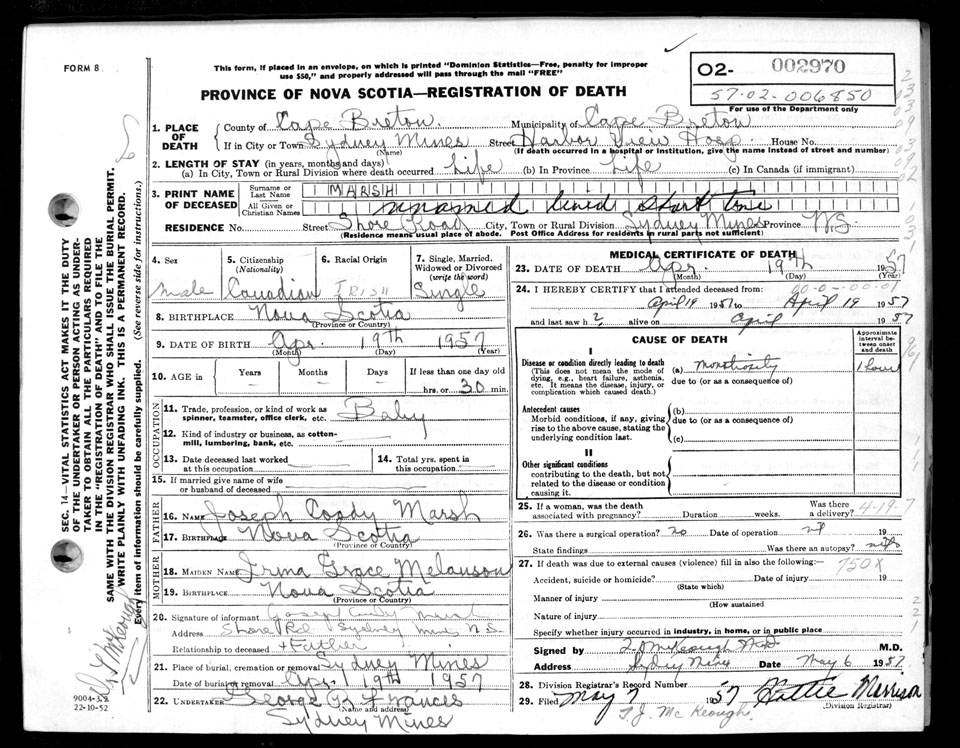 FORM 8
This form, if placed in an envelope, on which is printed "Dominion Statistics—Free, penalty for improper
use $50," and properly addressed will pass through the mail "FREE"
PROVINCE OF NOVA SCOTIA—REGISTRATION OF DEATH
O2- 002970
57-02-006850
For use of the Department only
SEC. 14—VITAL STATISTICS ACT MAKES IT THE DUTY
OF THE UNDERTAKER OR PERSON ACTING AS UNDER-
TAKER TO OBTAIN ALL THE PARTICULARS REQUIRED
IN THE "REGISTRATION OF DEATH" AND TO FILE THE
SAME WITH THE DIVISION REGISTRAR WHO SHALL ISSUE THE BURIAL PERMIT.
WRITE PLAINLY WITH UNFADING INK. THIS IS A PERMANENT RECORD.
Every item of information should be carefully supplied. (See reverse side for instructions.)
1. PLACE OF DEATH
County of Cape Breton Municipality of Cape Breton
If in City or Town Sydney Mines Street Harbor View Hosp House No.
(Name) (If death occurred in a hospital or institution, give the name instead of street and number)
2. LENGTH OF STAY (in years, months and days)
(a) In City, Town or Rural Division where death occurred Life (b) In Province Life (c) In Canada (if immigrant)
3. PRINT NAME OF DECEASED
Surname or Last Name MARSH
All Given or Christian Names unnamed lived short time
RESIDENCE No. Street Shore Road City, Town or Rural Division Sydney Mines Province N.S.
(Residence means usual place of abode. Post Office Address for residents in rural parts not sufficient)
4. Sex
male
5. Citizenship (Nationality)
Canadian
6. Racial Origin
IRISH
7. Single, Married, Widowed or Divorced (write the word)
Single
8. BIRTHPLACE Nova Scotia
(Province or Country)
9. DATE OF BIRTH Apr. 19th 1957
(Month) (Day) (Year)
10. AGE in Years Months Days If less than one day old
hrs. or 30 min.
OCCUPATION
11. Trade, profession, or kind of work as
spinner, teamster, office clerk, etc. Baby
12. Kind of industry or business, as cotton-
mill, lumbering, bank, etc.
13. Date deceased last worked
at this occupation
14. Total yrs. spent in
this occupation
15. If married give name of wife
or husband of deceased
FATHER
16. NAME Joseph Coady Marsh
17. BIRTHPLACE Nova Scotia
(Province or Country)
MOTHER
18. MAIDEN NAME Irma Grace Melanson
19. BIRTHPLACE Nova Scotia
(Province or Country)
20. Signature of informant Joseph Coady Marsh
Address Shore Rd Sydney Mines N.S.
Relationship to deceased Father
21. Place of burial, cremation or removal Sydney Mines
Date of burial or removal Apr. 19th 1957
22. UNDERTAKER George R. Frances
(Name and address)
Sydney Mines
9004-3.2
22-10-52
MEDICAL CERTIFICATE OF DEATH
23. DATE OF DEATH Apr. 19th 1957
(Month) (Day)
24. I HEREBY CERTIFY that I attended deceased from:
April 19 1957 to April 19 1957
and last saw h alive on April 1957
CAUSE OF DEATH
Approximate interval between onset and death
I
Disease or condition directly leading to death
(This does not mean the mode of
dying, e.g., heart failure, asthenia,
etc. It means the disease, injury, or
complication which caused death.)
(a) monstrosity 1 hour
due to (or as a consequence of)
Antecedent causes
Morbid conditions, if any, giving
rise to the above cause, stating the
underlying condition last.
(b)
due to (or as a consequence of)
(c)
II
Other significant conditions
contributing to the death, but not
related to the disease or condition
causing it.
25. If a woman, was the death
associated with pregnancy? Duration weeks. Was there
a delivery? 4-19-7
26. Was there a surgical operation? no Date of operation nil 19
State findings Was there an autopsy?
27. If death was due to external causes (violence) fill in also the following:— 750X
Accident, suicide or homicide? Date of injury 19
(State which)
Manner of injury
(How sustained)
Nature of injury
Specify whether injury occurred in industry, in home, or in public place
Signed by T. J. McKeough M.D. M.D.
Address Sydney Mines Date May 6 1957
28. Division Registrar's Record Number
29. Filed May 7 1957 Hattie Morrison
(Division Registrar)
T.J. McKeough.